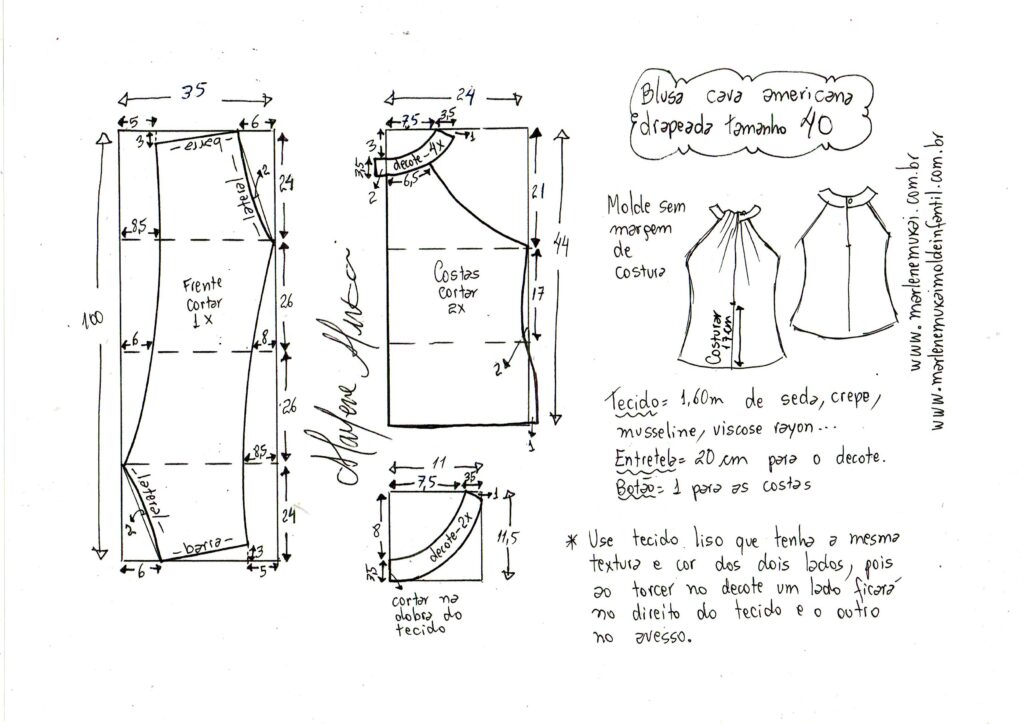 Blusa cava americana
drapeada tamanho 40
35
5
6
3
barra
lateral
2
24
8,5
26
Frente
cortar
1x
100
6
8
26
8,5
lateral
2
24
barra
3
6
5
Marlene Mukai
24
7,5
3,5
1
3
decote-4x
3,5
6,5
2
21
44
Costas
cortar
2x
17
2
1
11
7,5
35
1
8
decote-2x
11,5
3,5
cortar na
dobra do
tecido
Molde sem
margem
de
costura
Costurar
17cm
www.marlenemukai.com.br
www.marlenemukaimoldeinfantil.com.br
Tecido= 1,60m de seda, crepe,
musseline, viscose rayon...
Entretela= 20 cm para o decote.
Botão= 1 para as costas
* Use tecido liso que tenha a mesma
textura e cor dos dois lados, pois
ao torcer no decote um lado ficará
no direito do tecido e o outro
no avesso.